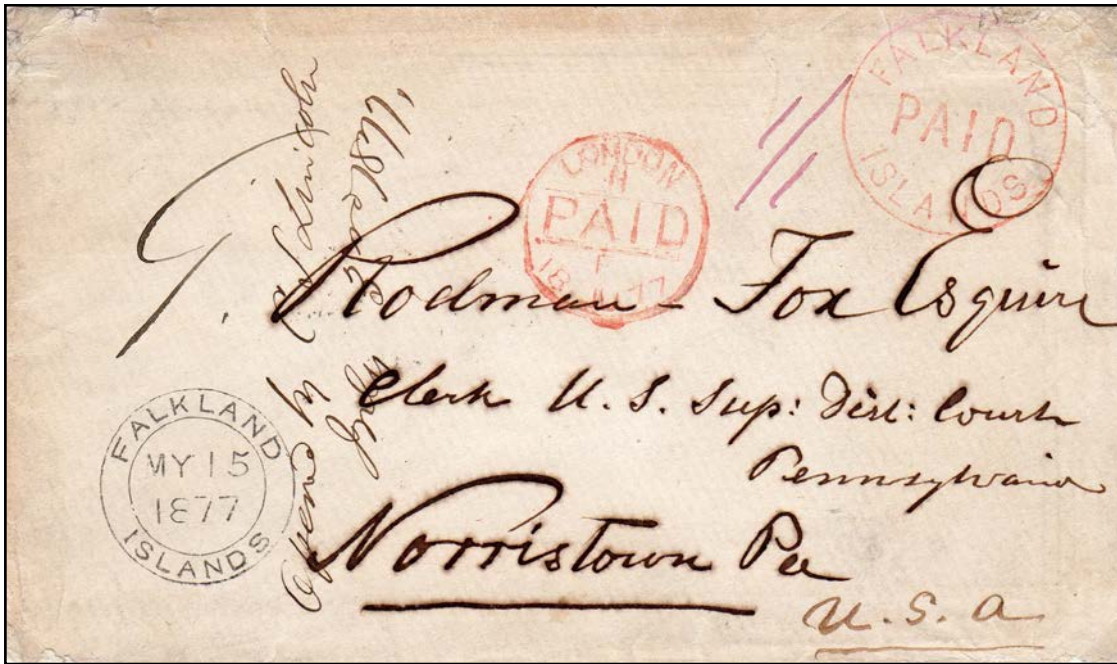 FALKLAND
PAID
ISLANDS
LONDON
PAID
77
G. Rodman Fox Esquire
Clerk U. S. Sup: Dist: Court
Pennsylvania
Norristown Pa
U. S. A
FALKLAND
MY 15
1877
ISLANDS
Opened by Lincoln